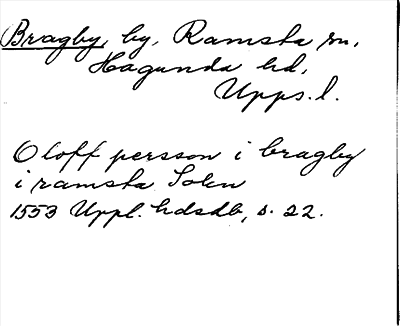 Bragby, by, Ramsta sn,
Hagunda hd,
Upps. l.
Oloff persson i bragby
i ramsta Sokn
1553 Uppl. hdsdb, s. 22.